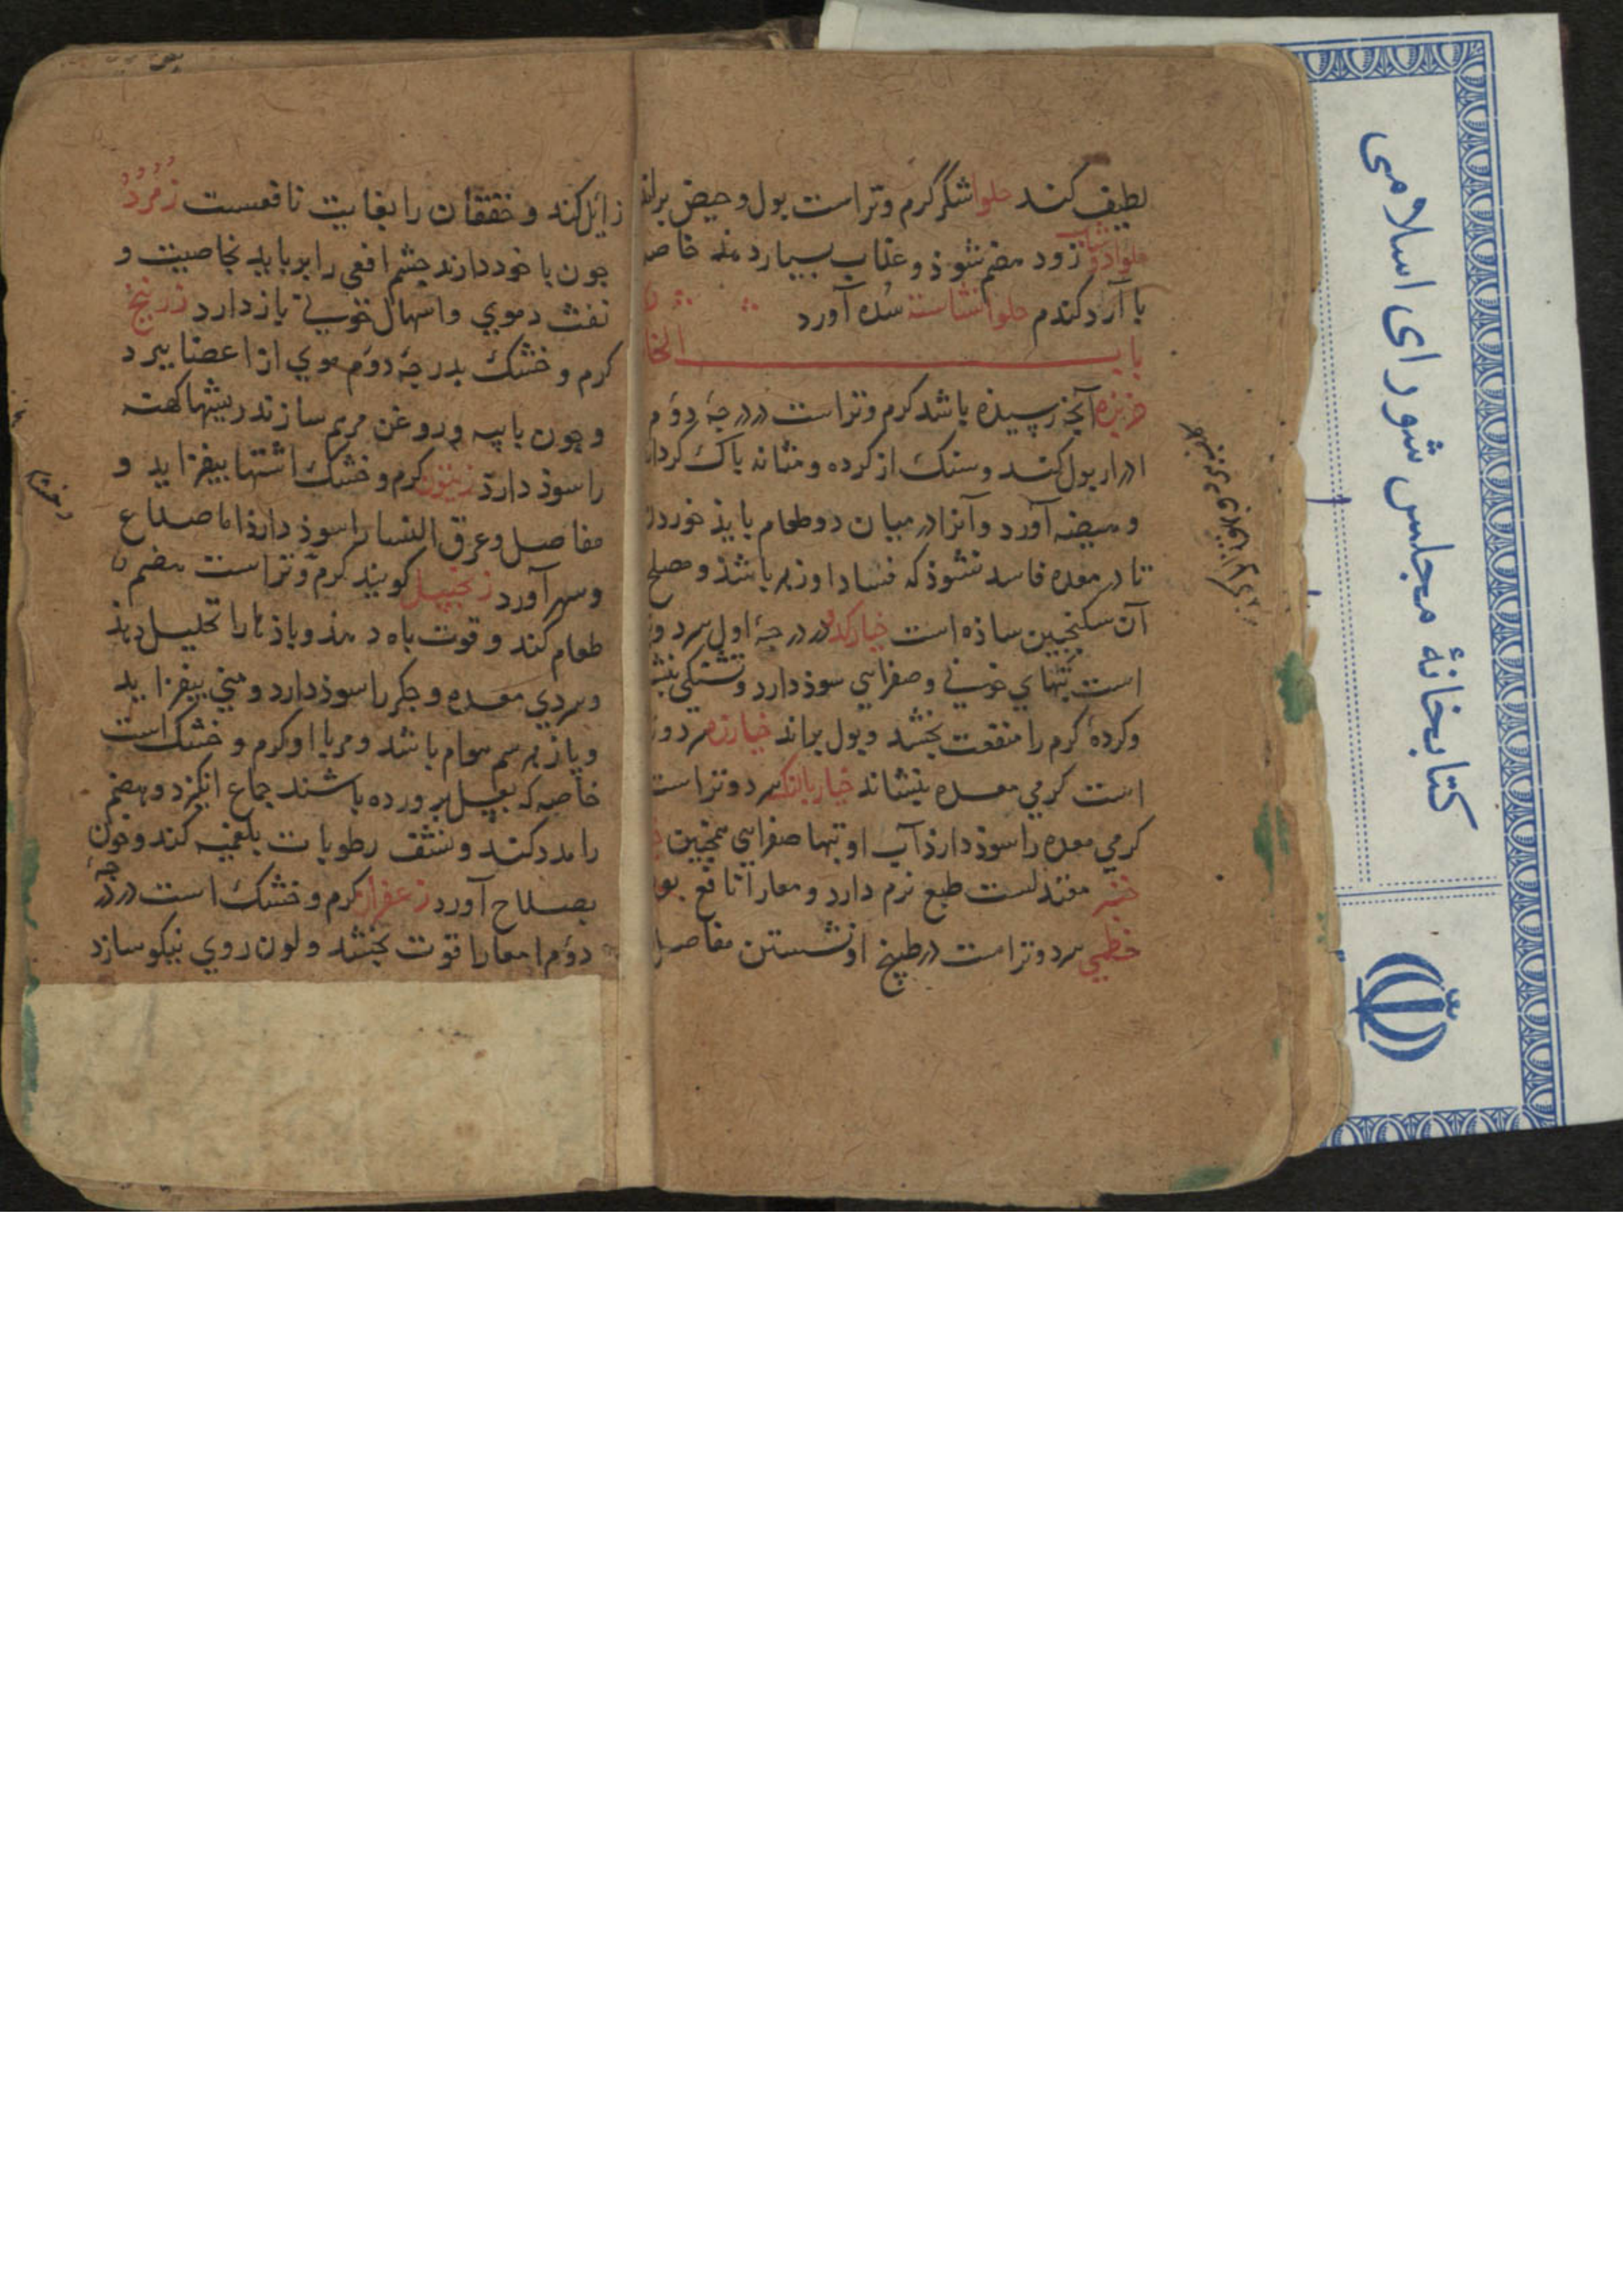 لطیف کند حلوا شکر گرم و تر است بول و حیض براند
حلوا دوشاب زود هضم شوذ و غذاء بسیار دهذ خاصه
با آرد کندم حلوا نشاسته سده آورد
باب الخا
خربزه آنچ رسیذه باشد کرم و تر است در درجهٔ دوم
ادرار بول کند و سنک از کرده و مثانه باک کرداند
و هیضه آورد و آنرا در میان دو طعام بایذ خوردن
تا در معده فاسد نشوذ که فساد او زهر باشذ و مصلح
آن سکنجبین ساذه است خیار کدو در درجهٔ اول سرد و تر
است تبهاي خونی و صفرایي سوذ دارد و تشنکی
و کردهٔ کرم را منفعت بخشد و بول براند خیارزه سرد و تر
است کرمي معده بنشاند خیار بالنک سرد و تر است
کرمي معده را سوذ دارذ آب او تبها صفرایي
معتدلست طبع نرم دارد و معا را نافع بود
خطمي سرد و تر است در طبیخ او نشستن مفاصل
زایل کند و خفقان را بغایت نافعست زمرد
جون با خود دارند چشم افعی را برباید بخاصیت و
نفث دموي و اسهال خونی باز دارد زرنیخ
کرم و خشک بدرجهٔ دوم موي از اعضا ببرد
و چون با پیه و روغن مرهم سازند ریشها کهنه
را سوذ دارد زیتون کرم و خشک اشتها بیفزاید و
مفاصل و عرق النسا را سوذ دارذ اما صداع
و سهر آورد زنجبیل کویند کرم و تر است هضم
طعام کند و قوت باه دهذ و باذها را تحلیل دهذ
و سردي معده و جکر را سوذ دارد و مني بیفزاید
و پازهر سم هوام باشد و مربا او کرم و خشک است
خاصه که بعسل پرورده باشند جماع انکیزد و هضم
را مدد کند و نشف رطوبات بلغمیه کند و خون
بصلاح آورد زعفران کرم و خشک است در درجهٔ
دوم امعا را قوت بخشد و لون روي نیکو سازد
کتابخانهٔ مجلس شورای اسلامی